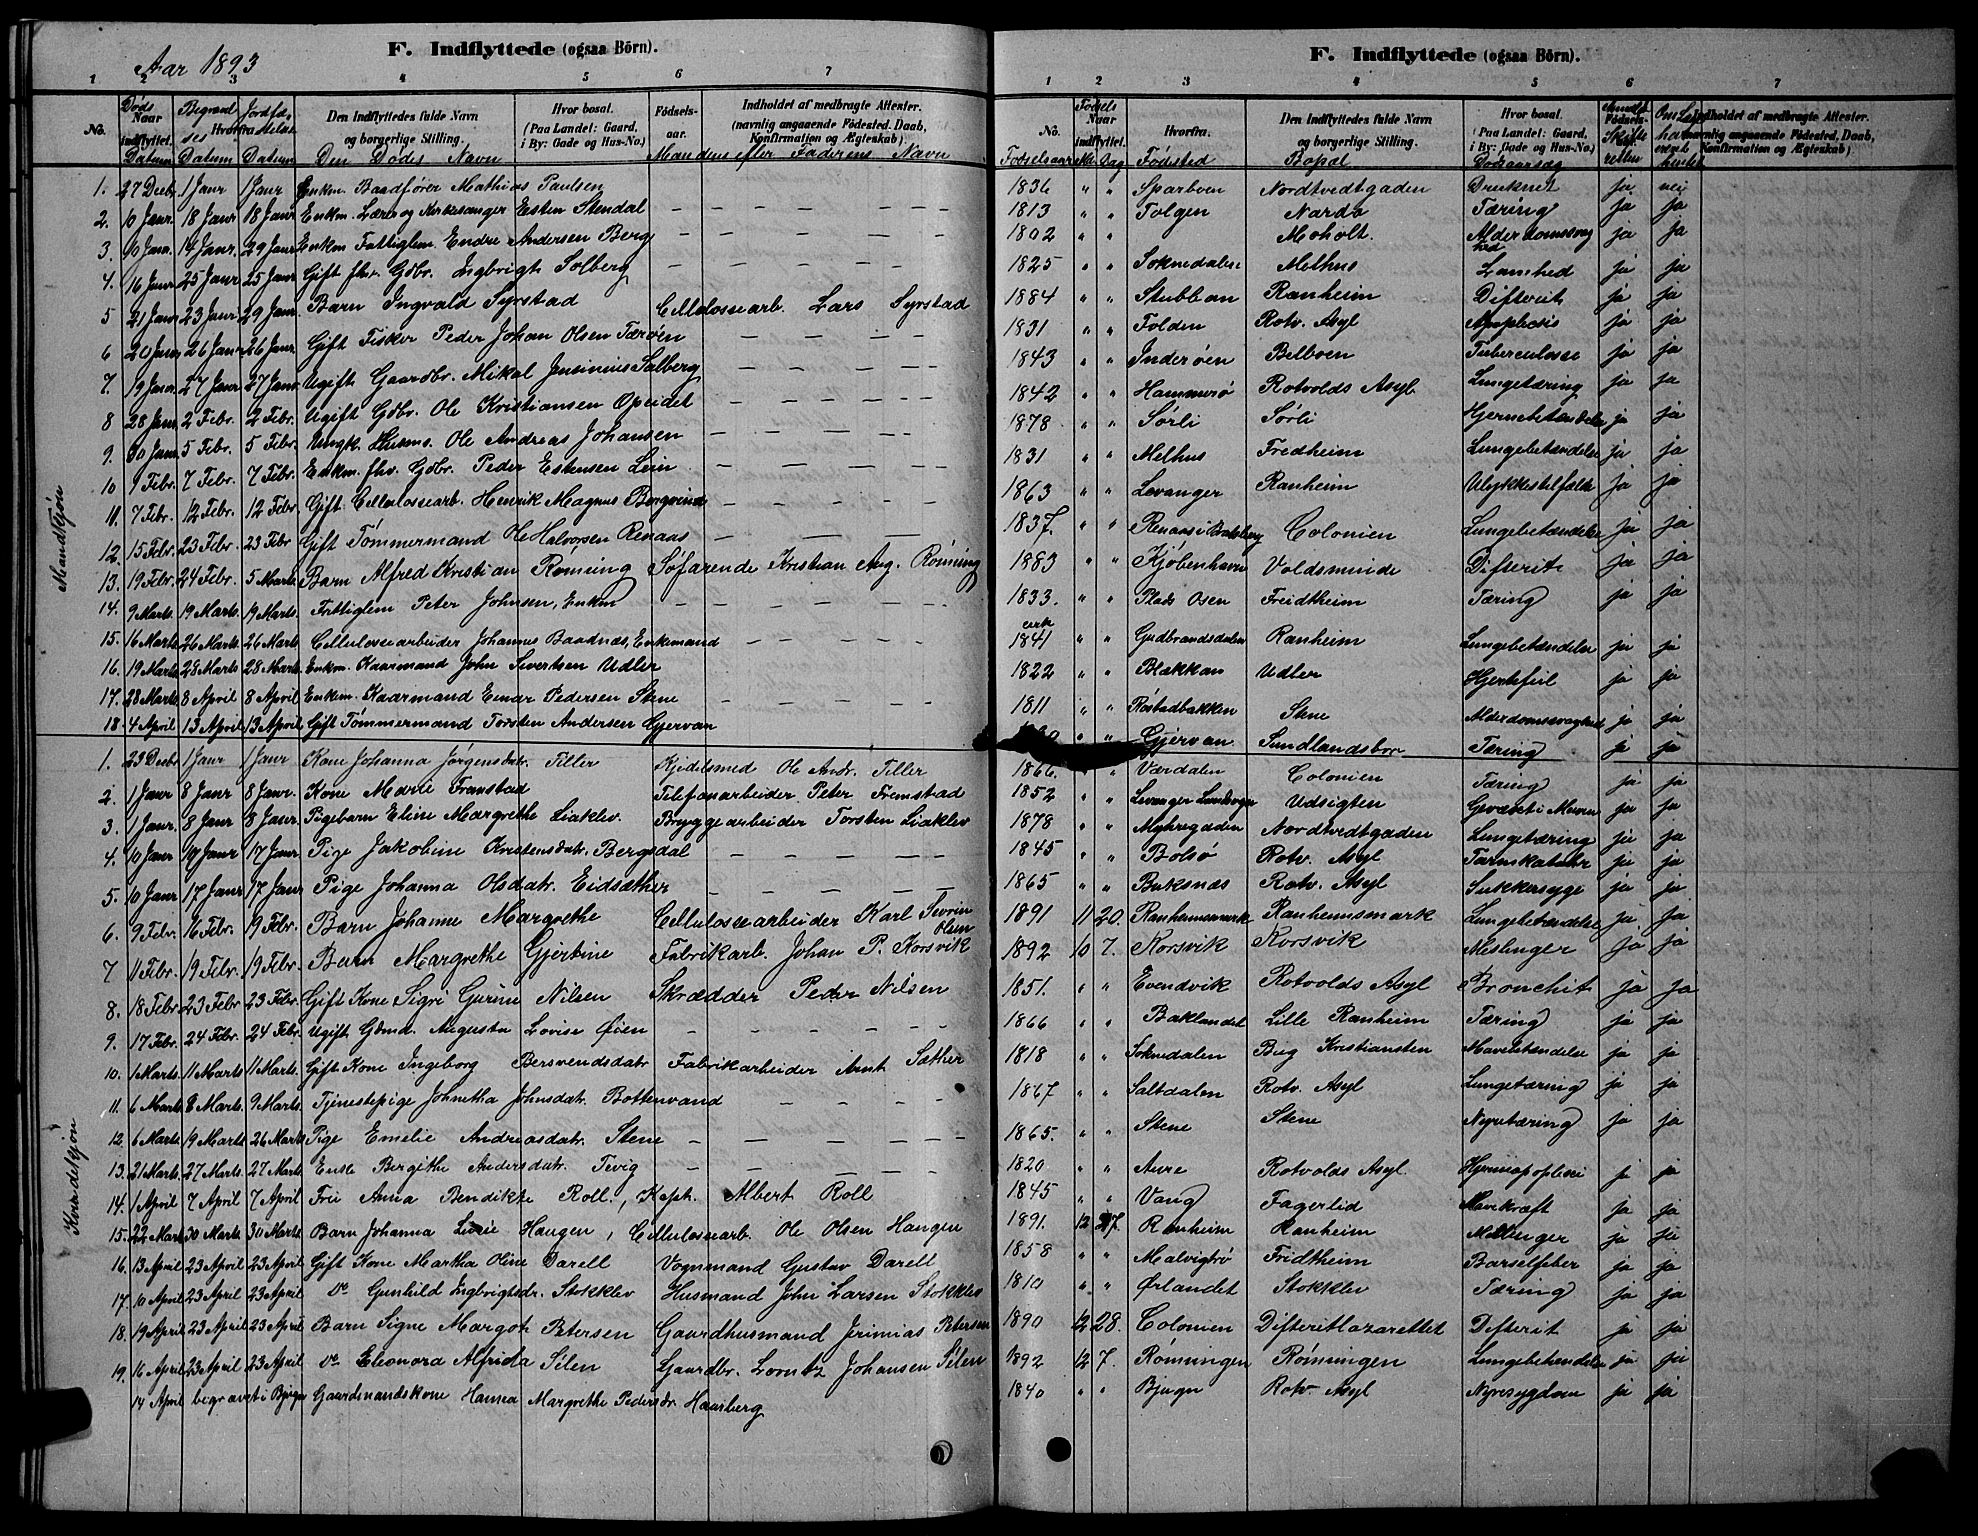 Aar 1893
F. Indflyttede (ogsaa Börn).
1 2 3 4 5 6 7
No. Naar indflyttet. Hvorfra. Den Indflyttedes fulde Navn og borgerlige Stilling. Hvor bosat. (Paa Landet: Gaard, i By: Gade og Hus-No.) Fødsels-aar. Indholdet af medbragte Attester. (navnlig angaaende Födested, Daab, Konfirmation og Ægteskab).
Döds Datum Begravelses Datum Jordfæstelses Datum Den Dödes Navn Mandens eller Faderens Navn
Mandkjøn
1. 27 Decbr. 1 Janr 1 Janr Enkm. Baadfører Mathias Paulsen
2. 10 Janr. 18 Janr 18 Janr Enkm. Lærer og Kirkesanger Esten Stendal — — — — —
3. 10 Janr. 14 Janr. 29 Janr Enkm Fattiglem. Endre Andersen Berg — — — — —
4. 16 Janr 25 Janr 25 Janr Gift fhv. Gdbr. Ingbrigt Solberg — — — — —
5 21 Janr 23 Janr 29 Janr. Barn Ingvald Syrstad Cellulossearb. Lars Syrstad
6 20 Janr 26 Janr 26 Janr. Gift Fisker Peder Johan Olsen Tærøen — — — — —
7. 19 Janr. 27 Janr 27 Janr Ugift Gaardbr. Mikal Jensinius Salberg — — — — —
8 28 Janr 2 Febr. 2 Febr. Ugift Gdbr. Ole Kristiansen Opeidet — — — — —
9. 30 Janr 5 Febr. 5 Febr. Ungk. Husms. Ole Andreas Johansen — — — — —
10 1 Febr. 7 Febr. 7 Febr. Enkm. fhv. Gdbr. Peder Estensen Lein — — — — —
11. 7 Febr. 12 Febr. 12 Febr Gift Cellulossearb. Henrik Magnus Bergqvind — — — — —
12. 15 Febr. 23 Febr. 23 Febr Gift Tömmermand Ole Halvorsen Renaas — — — —
13. 19 Febr. 24 Febr. 5 Marts Barn Alfred Kristian Røming Søfarende Kristian Aug. Rønning
14. 9 Marts. 19 Marts. 19 Marts. Fattiglem Peter Johnsen, Enkm — — — — —
15. 16 Marts 26 Marts. 26 Marts. Cellulosearbeider Johannes Baadnæs, Enkemand — — — —
16. 19 Marts 28 Marts. 28 Marts. Enkm. Kaarmand John Sivertsen Udler — — — — —
17. 28 Marts 8 April 8 April Enkm. Kaarmand Einar Pedersen Stene — — — — —
18. 4 April 13 April 13 April Gift Tømmermand Torsten Andersen Gjervan
Kvindekjøn
1. 23 Decbr 1 Janr 1 Janr Kone Johanna Jørgensdatr. Tiller Kjedelsmed Ole Andr. Tiller
2. 1 Janr 8 Janr 8 Janr. Kone Marie Fremstad Telefonarbeider Peter Fremstad
3. 1 Janr. 8 Janr 8 Janr. Pigebarn Eline Margrethe Liaklev. Bryggearbeider Torsten Liaklev
4. 10 Janr 17 Janr 17 Janr Pige Jakobine Kristensdatr. Bergsdal — — — — —
5. 10 Janr. 17 Janr 17 Janr Pige Johanna Olsdatr. Eidsæther — — — — —
6. 9 Febr. 16 Febr. 19 Febr. Barn Johanne Margrethe Cellulossearbeider Karl Sevrin Olsen
7 11 Febr. 19 Febr. 19 Febr. Barn Margrethe Gjertine Fabrikarb. Johan P. Korsvik
8. 18 Febr. 23 Febr 23 Febr. Gift Kone Sigri Gurine Nilsen Skrædder Peder Nilsen
9. 17 Febr. 24 Febr. 24 Febr. Ugift Gdmd. Augusta Lovise Øien — — — — —
10. 1 Marts. 11 Marts 11 Marts. Gift Kone Ingeborg Bersvendsdatr Fabrikarbeider Arnt Sæther
11. 6 Marts. 8 Marts. 9 Marts. Tjenestepige Johnetha Johnsdatr. Bottenvand — — — —
12. 6 Marts. 19 Marts. 26 Marts Pige Emelie Andreasdatr. Stene — — — — —
13. 21 Marts. 27 Marts. 27 Marts. Enke Bergithe Andersdatr. Tevig — — — — —
14. 1 April 7 April 7 April Fru Anna Bendikte Roll, Kaph. Albert Roll
15. 22 Marts 30 Marts. 30 Marts. Barn Johanna Haugen, Cellulossearb. Ole Olsen Haugen
16. 13 April 23 April. 23 April. Gift Kone Martha Oline Darell Vognmand Gustav Darell
17. 10 April 23 April. 23 April. Do Gunhild Ingbrigtsdr. Stokklev Husmand John Larsen Stokklev
18. 19 April 23 April 23 April Barn Signe Margot Petersen Gaardhusmand Jerimias Petersen
19. 16 April 23 April 23 April. Do Eleonora Alfrida Silen Gaardbr. Lorntz Johansen Silen
14 April begravet i Bjugn Gaardmandskone Hanna Margrethe Pedersdr Haarberg
F. Indflyttede (ogsaa Börn).
1 2 3 4 5 6 7
No. Naar indflyttet. Hvorfra. Den Indflyttedes fulde Navn og borgerlige Stilling. Hvor bosat. (Paa Landet: Gaard, i By: Gade og Hus-No.) Fødsels-aar. Indholdet af medbragte Attester. (navnlig angaaende Födested, Daab, Konfirmation og Ægteskab).
Fødselsaar Dag Fødsted Bopæl Dødsaarsag Anmeldt Skifteretten
1836 " " Sparboen Nordtvedtgaden Druknet ja nei
1813 " " Tolgen Nardo Tæring ja ja
1802 " " Moholt. Alderdomssvaghed ja ja
1825 " " Soknedalen Melhus Lamhed ja ja
1884 " " Stubban Ranheim Difterit ja ja
1831 " " Folden Rotv. Asyl Apoplexis ja ja
1843 " " Inderøen Belboen Tuberculosse ja ja
1842 " " Hammerø Rotvolds Asyl. Lungetæring ja ja
1878 " " Sørli Sørli Hjernebetændelse ja ja
1831 " " Melhus Fredheim Lungebetændelse ja ja
1863 " " Levanger Ranheim Ulykkestilfælde ja ja
1837. " " Renaas i Bratsberg Colonien Lungebetændelse ja ja
1883 " " Kjøbenhavn Voldsminde Difterit ja ja
1833. " " Plads Osen Freidtheim Tæring ja ja
cirk 1841 " " Gudbrandsdalen Ranheim Lungebetændelse ja ja
1822 " " Blækkan Udler Hjertefeil ja ja
1811 " " Røstadbakken Stene Alderdomssvaghed ja ja
" " Gjervan Sundlandsbor Tæring ja ja
1866. " Værdalen Colonien Tæring ja ja
1852 " " Levanger Landsogn Udsigten Geväxst i Maven ja ja
1878 " " Myhregaden Nordtvedtgaden Lungetæring ja ja
1845 " " Bolsø Rotv. Asyl Tarmkatahr ja ja
1865 " " Buksnæs Rotv. Asyl Sukkersyge ja ja
1891 11 20. Ranheimsmark Ranheimsmark Lungebetændelse ja ja
1892 10 7. Korsvik Korsvik Meslinger ja ja
1851. " " Evendvik Rotvolds Asyl Bronchit ja ja
1866 " " Baklandet Lille Ranheim Tæring ja ja
1818 " " Soknedalen Bug Kristiansten Mavebetændelse ja ja
1867 " " Saltdalen Rotv. Asyl Lungetæring ja ja
1865. " " Stene Stene Nyretæring ja ja
1820 " " Aure Rotvolds Asyl. Hjerneapoplexi ja ja
1845 " " Vang Fagerlid Mavekræft ja ja
1891. 12 27. Ranheim Ranheim Meslinger ja ja
1858 " " Malvigtrø Fridtheim Barselfeber ja ja
1810 " " Ørlandet Stokklev Tæring ja ja
1890 12 28. Colonien Difteritlazarettet Difterit ja ja
1892 12 7. Rømingen Rømingen Lungebetændelse ja ja
1840 " " Bjugn Rotv Asyl Nyresygdom ja ja